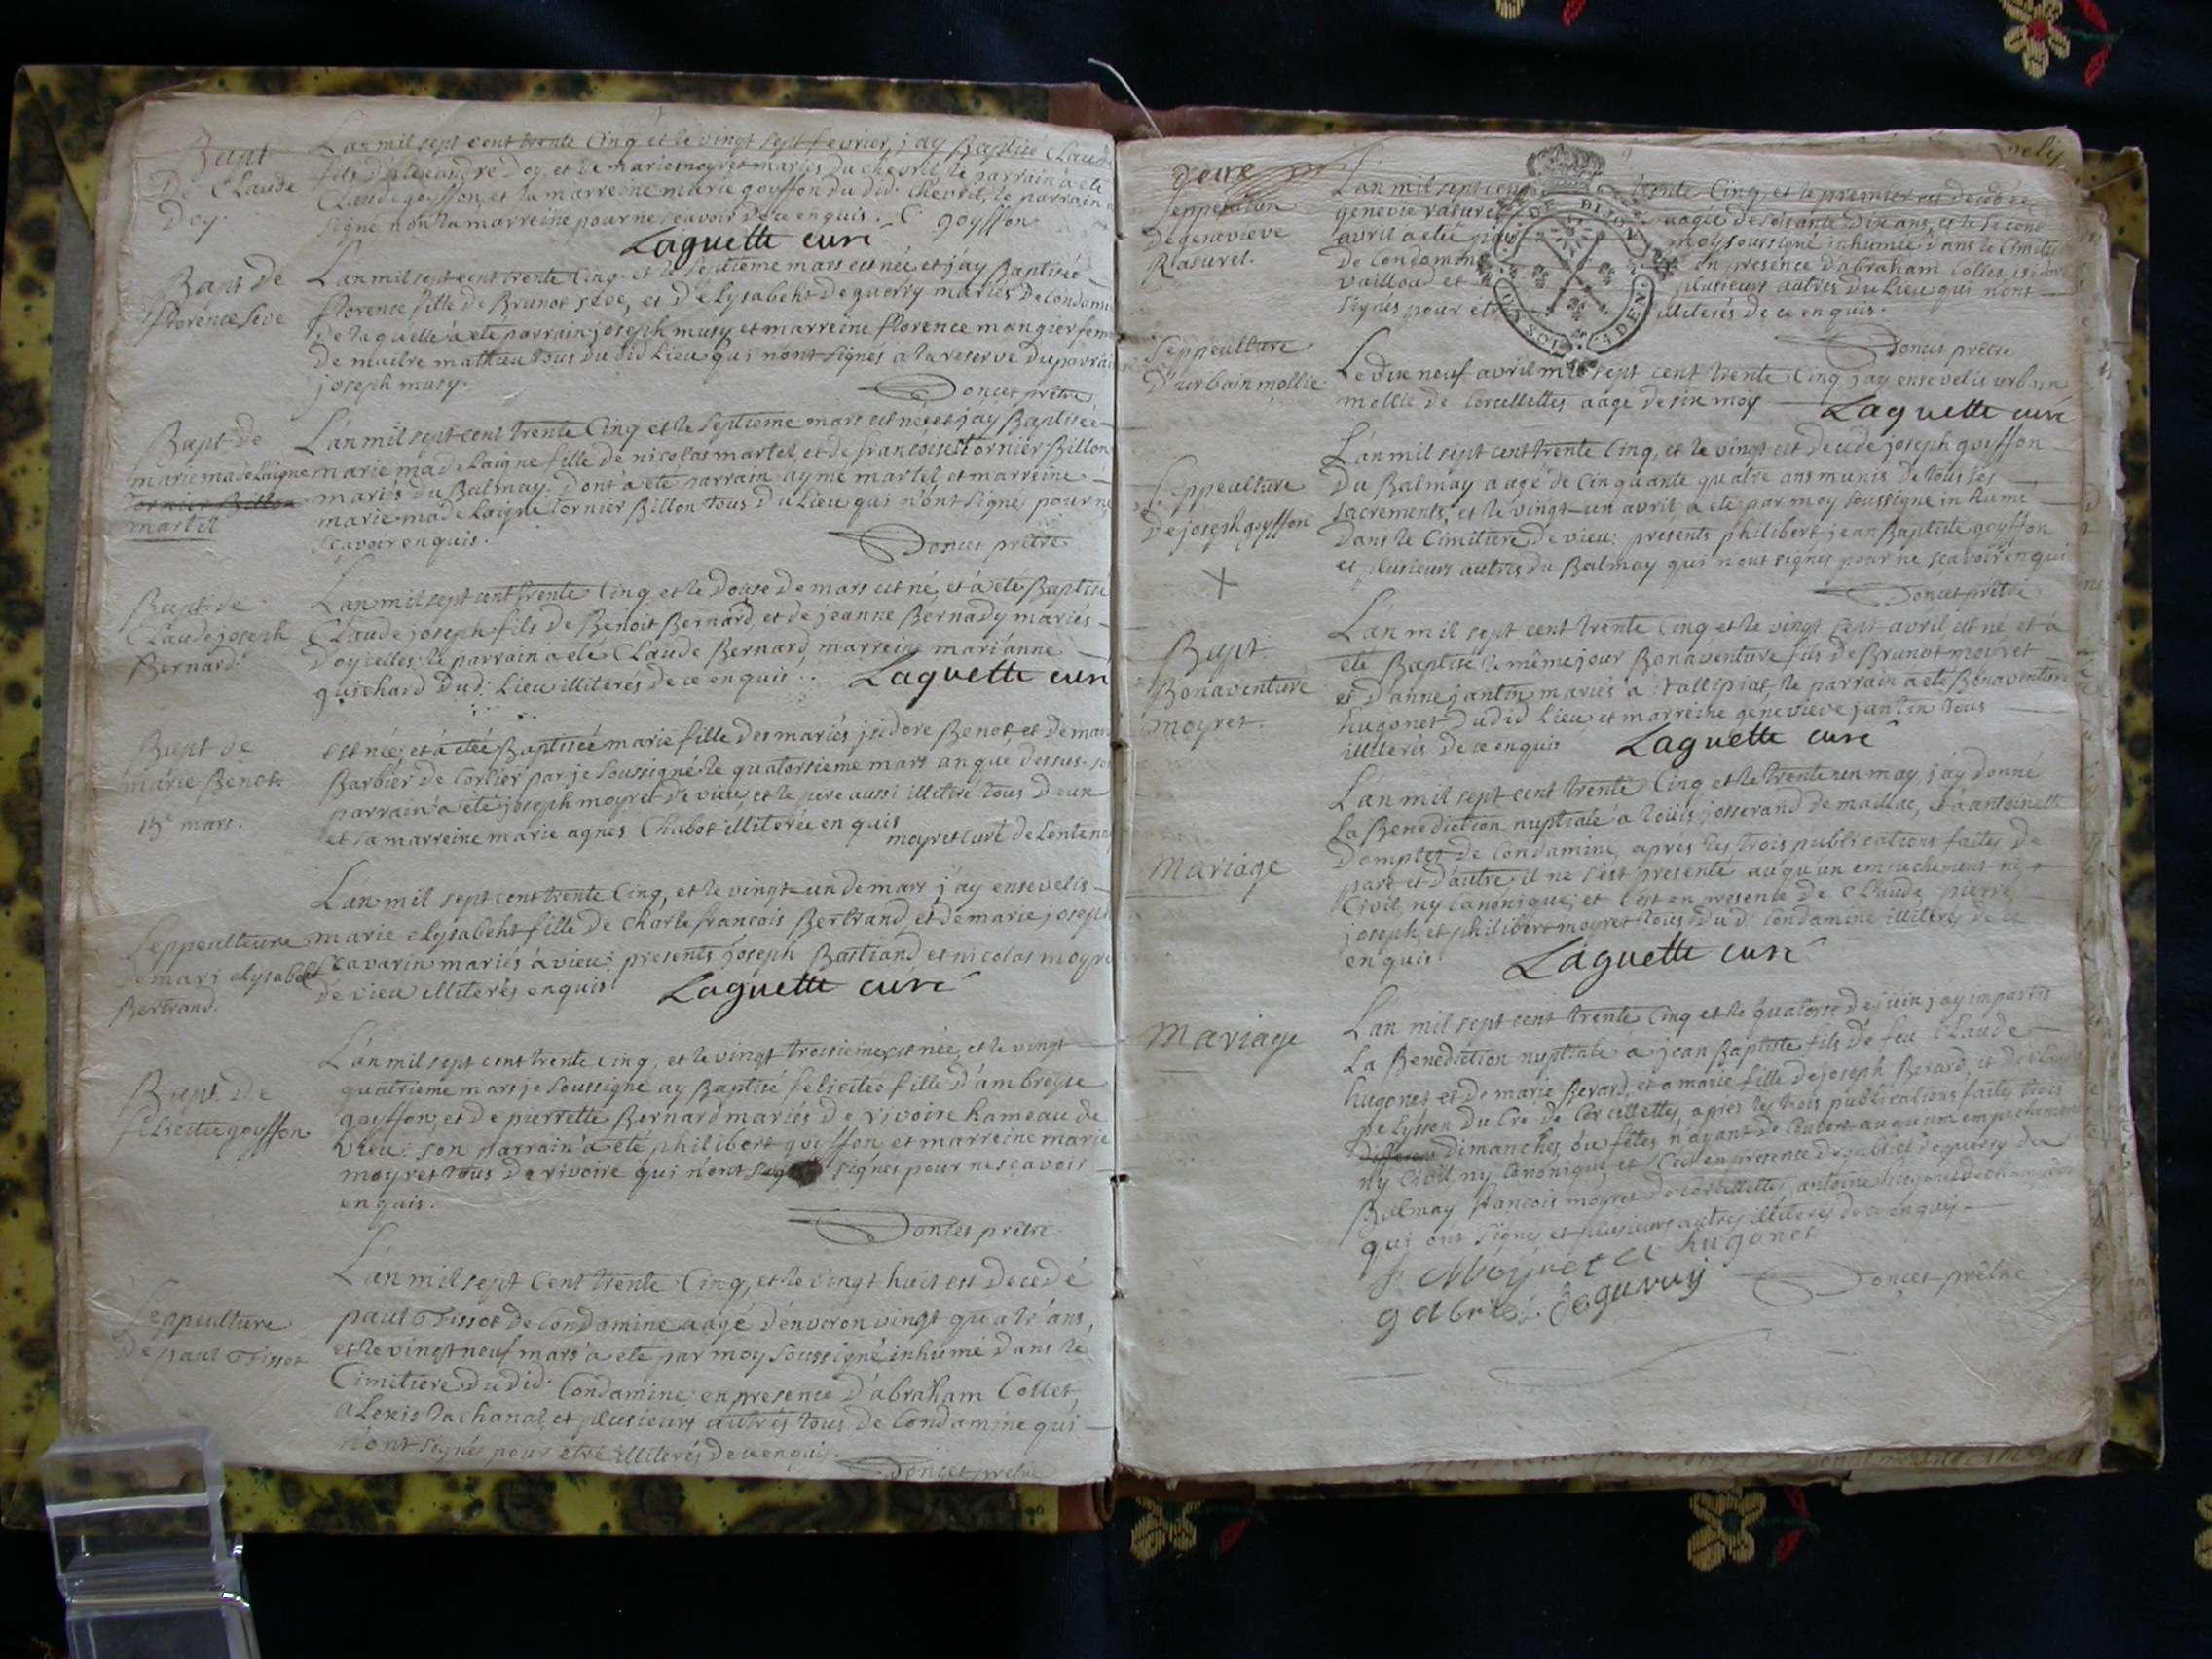 Bapt
De Claude
Doy.
L'an mil sept cent trente Cinq et le vingt sept fevrier, j'ay Baptisé Claude
fils d'alexandre Doy, et de marie moyret mariés du chevril, le parrain a eté
Claude goyffon, et la marreine marie goyffon du did. Chevril, le parrain a
signé non la marreine pour ne scavoir de ce enquis. C. goyffon
Laguette curé
Bapt de
florence Seve
L'an mil sept cent trente Cinq. et le septieme mars est née, et j'ay Baptisée
florence fille de Brunot seve, et d'elysabeht Deguerry mariés De Condami
de laquelle à eté parrain joseph musy et marreine florence mangier fem
de maitre mathieu tous du did. Lieu qui n'ont signés a la reserve du parrai
joseph musy.
Doncet prêtre
Bapt de
marie madelaigne
tornier Billon
martel
L'an mil sept cent trente Cinq et le septieme mars est née et j'ay Baptisée
marie madelaigne fille de nicolas martel, et de francoise tornier Billon
mariés du Balmay. Dont à eté parrain ayme martel, et marreine
marie madelaigne tornier Billon tous du Lieu qui n'ont signés pour ne
scavoir enquis.
Doncet prêtre
Bapt de
Claude joseph
Bernard.
L'an mil sept cent trente Cinq et le Douse de mars est né, et à eté Baptisé
Claude joseph fils de Benoit Bernard, et de jeanne Bernady mariés
D'oyselles, le parrain a eté Claude Bernard, marreine mari'anne
guichard Dud. Lieu illiterés de ce enquis.. Laguette curé
Bapt de
marie Benot.
15e mars.
est née, et à eteé Baptisée marie fille des mariés jsidore Benot et de mari
Barbier de Corlier par je soussigné le quatorsieme mars an que dessus. son
parrain a eté joseph moyret de vieu, et le pere aussi illiteré tous deux
et sa marreine marie agnes Chabot illiterée enquis
moyret curé de Lentenay
Seppeulteure
de mari elysabet
Bertrand.
L'an mil sept cent trente Cinq, et le vingt-un de mars j'ay ensevelis
marie elysabeht fille de Charle francois Bertrand, et de marie joseph
Scavarin mariés à vieu. presents joseph Bastiand et nicolas moyre
de vieu illiterés enquis. Laguette curé
Bapt de
felicitée goyffon
L'an mil sept cent trente cinq, et le vingt troisieme est née, et le vingt
quatrieme mars je soussigné ay Baptisé felicitée fille d'ambroyse
goyffon, et de pierrette Bernard mariés de rivoire hameau de
vieu: son parrain à eté philibert goyffon, et marreine marie
moyret tous de rivoire qui n'ont signés pour ne scavoir
enquis.
Doncet prêtre
Seppeulture
De paul Tissot
L'an mil sept Cent trente Cinq, et le vingt huit est decedé
paul Tissot de Condamine aagé d'environ vingt quatr'ans,
et le vingt neuf mars a eté par moy soussigné inhumé dans le
Cimitiere du did. Condamine. en presence d'abraham Collet,
alexis lachanal, et plusieurs autres tous de Condamine qui
n'ont signés pour être illiterés de ce enquis.
Doncet prêtre
Seppeulture
De genevieve
Rasurel.
L'an mil sept cent trente Cinq, et le premier est decedée
genevie rasurel aagée de soisante Dix ans, et le second
avril a eteé par moy soussigné inhumée dans le Cimitie
de Condamine en presence d'abraham Collet, isidore
vailloud et plusieurs autres du Lieu qui n'ont
signés pour etre illiterés de ce enquis.
Doncet prêtre
Seppeulture
D'urbain mollie
Le dix neuf avril mil sept cent trente Cinq j'ay ensevelis urbain
mollie de Corcellettes aagé de six moy Laguette curé
Seppeulture
De joseph goyffon
L'an mil sept cent trente Cinq, et le vingt est decedé joseph goyffon
du Balmay aagé de Cinquante quatre ans munis de tous les
sacrements, et le vingt-un avril a eté par moy soussigné inhumé
dans le Cimitiere de vieu; présents philibert, jean Baptiste goyffon
et plusieurs autres du Balmay qui n'ont signés pour ne scavoir enqui
Doncet prêtre
Bapt.
Bonaventure
moyret.
L'an mil sept cent trente Cinq et le vingt sept avril, est né, et à
eté Baptisé le même jour Bonaventure fils de Brunot moyret
et d'anne jantin mariés à talipiat, le parrain a eté Bonaventure
hugonet dudid Lieu, et marreine genevieve jantin tous
illiterés de ce enquis Laguette curé
Mariage
L'an mil sept cent trente Cinq et le trente un may, j'ay donné
la Benediction nuptiale à loüis josserand de maillac, & à antoinette
Domptet de Condamine, apres les trois publications faites de
part et d'autre; il ne s'est presenté auqu'un empechement ny
Civil, ny Canonique, et c'est en presence de Claude, pierre,
joseph, et philibert moyret tous Dud. Condamine illiteres de ce
enquis. Laguette curé
Mariage
L'an mil sept cent trente Cinq et le quatorse de juin j'ay imparti
la Benediction nuptiale a jean Baptiste fils de feu Claude
hugonet et de marie Berard, et a marie fille de joseph Berard, et
pelysson du Cré de Corcellettes, apres les trois publications faites trois
dimanches, ou fêtes n'ayant decouvert auqu'un empechement
ny Civil, ny Canonique, et c'est en presence de gabriel deguerry du
Balmay, francois moyret de Corcellettes, antoine hugonet
qui ont signés, et plusieurs autres illiteres de ce enquis
f. Moyret a hugonet
gabriel deguerry
Doncet prêtre